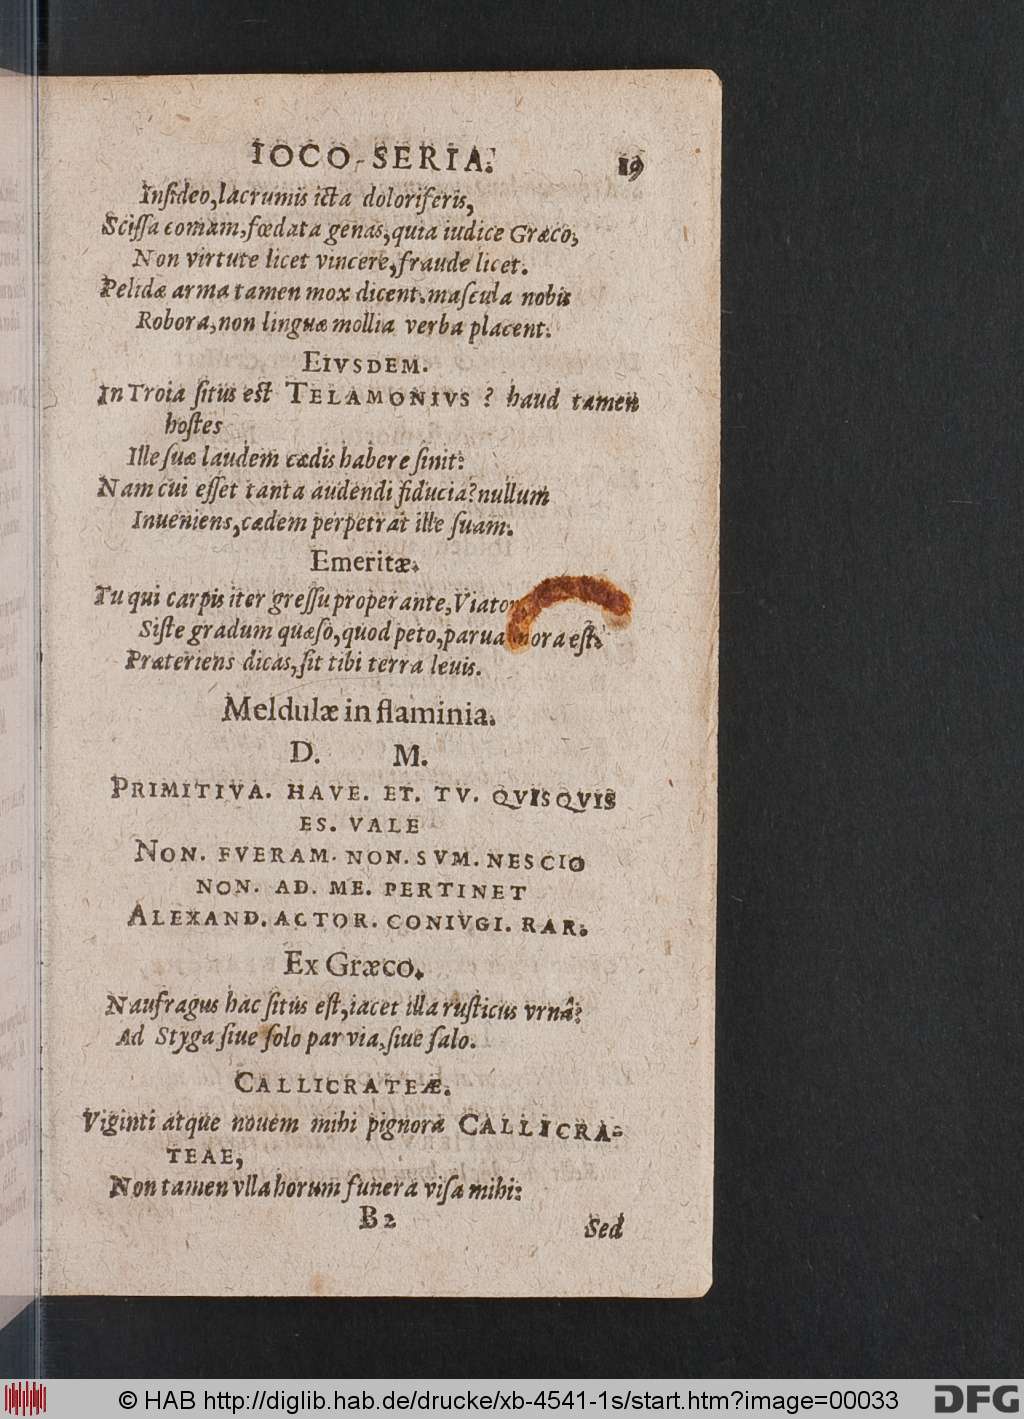 IOCO-SERIA. 19
Inſideo,lacrumis icta doloriferis,
Sciſſa comam,fœdata genas,quia iudice Græco,
Non virtute licet vincere,fraude licet.
Pelidæ arma tamen mox dicent.maſcula nobis
Robora,non linguæ mollia verba placent.
EIVSDEM.
In Troia ſitus est TELAMONIVS ? haud tamen
hoſtes
Ille ſuæ laudem cædis habere ſinit:
Nam cui eſſet tanta audendi fiducia?nullum
Inueniens,cædem perpetrat ille ſuam.
Emeritæ.
Tu qui carpis iter greſſu properante,Viator,
Siſte gradum quæſo,quod peto,parua mora eſt.
Præteriens dicas,ſit tibi terra leuis.
Meldulæ in flaminia.
D. M.
PRIMITIVA. HAVE. ET. TV. QVISQVIS
ES. VALE
NON. FVERAM. NON. SVM. NESCIO
NON. AD. ME. PERTINET
ALEXAND. ACTOR. CONIVGI. RAR.
Ex Græco.
Naufragus hac ſitus eſt,iacet illa ruſticus vrnâ:
Ad Styga ſiue ſolo par via,ſiue ſalo.
CALLICRATEÆ.
Viginti atque nouem mihi pignora CALLICRA-
TEAE,
Non tamen vlla horum funera viſa mihi:
B 2 Sed
© HAB http://diglib.hab.de/drucke/xb-4541-1s/start.htm?image=00033 DFG